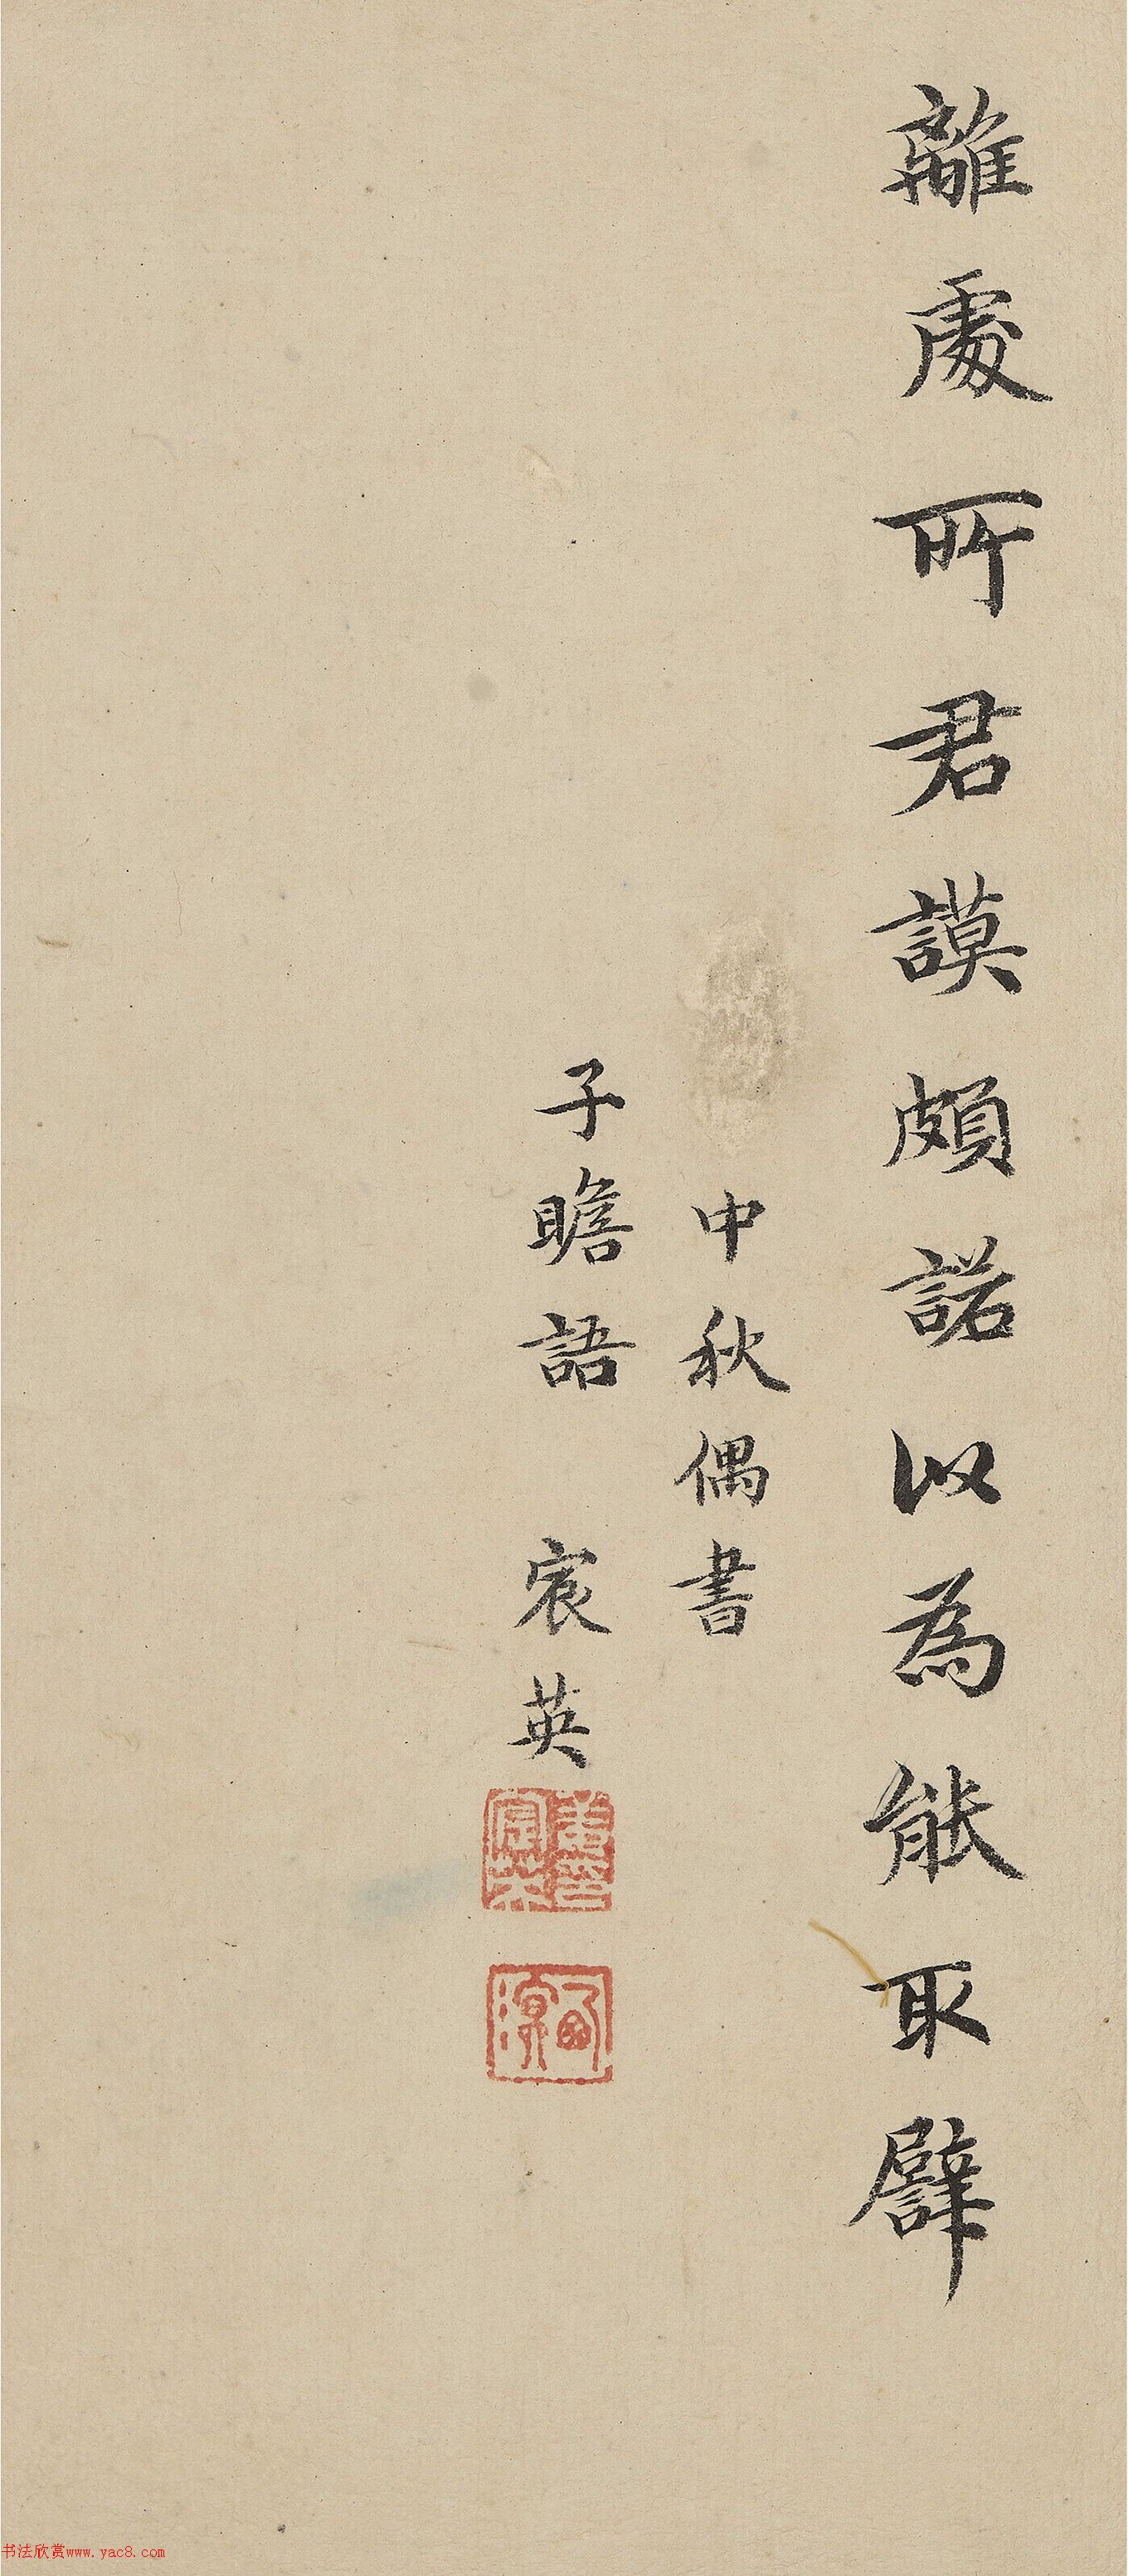 離處所君謨頗諾以為能取譬
中秋偶書
子瞻語 宸英
姜宸英印
书法欣赏www.yac8.com